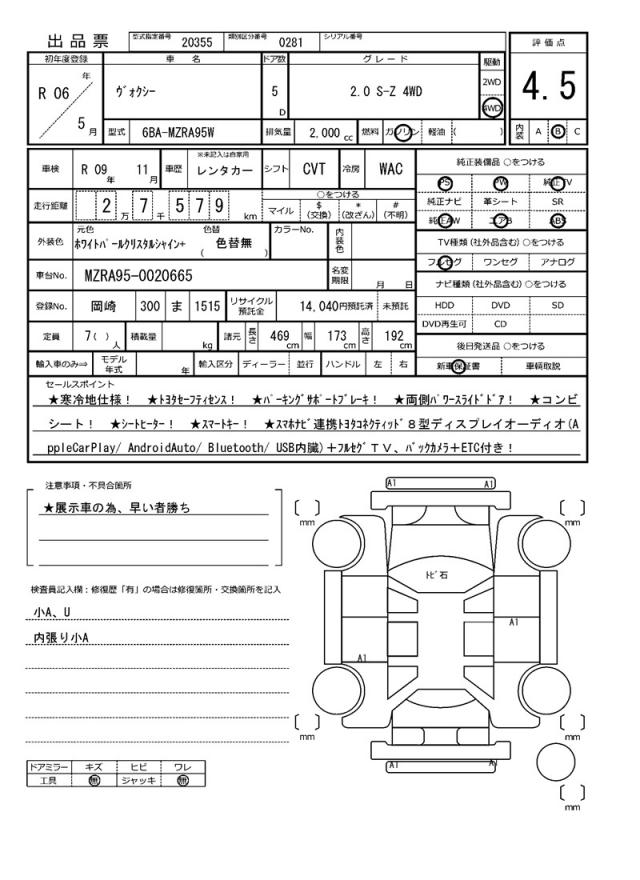 出品票 型式指定番号 20355 類別区分番号 0281 シリアル番号
評価点
4.5
初年度登録 車名 ドア数 グレード 駆動
R 06 年 5 月 ヴォクシー 5 D 2.0 S-Z 4WD 2WD 4WD
型式 6BA-MZRA95W 排気量 2,000 cc 燃料 ガソリン 軽油 ( ) 内装 A B C
車検 R 09 年 11 月 車歴 ※未記入は自家用 レンタカー シフト CVT 冷房 WAC
走行距離 2 万 7 千 5 7 9 km ○をつける マイル $ (交換) * (改ざん) # (不明)
外装色 元色 ホワイトパールクリスタルシャイン+ 色替 ( 色替無 ) カラーNo. 内装色
車台No. MZRA95-0020665 名変期限 月 日
登録No. 岡崎 300 ま 1515 リサイクル預託金 14,040円預託済 未預託
定員 7( ) 人 積載量 kg 諸元 長さ 469 cm 幅 173 cm 高さ 192 cm
輸入車のみ⇒ モデル年式 年 輸入区分 ディーラー 並行 ハンドル 左 右
純正装備品 ○をつける
PS PW 純正TV
純正ナビ 革シート SR
純正AW エアB ABS
TV種類 (社外品含む) ○をつける
フルセグ ワンセグ アナログ
ナビ種類 (社外品含む) ○をつける
HDD DVD SD
DVD再生可 CD
後日発送品 ○をつける
新車保証書 車輌取説
セールスポイント
★寒冷地仕様! ★トヨタセーフティセンス! ★パーキングサポートブレーキ! ★両側パワースライドドア! ★コンビ
シート! ★シートヒーター! ★スマートキー! ★スマホナビ連携トヨタコネクティッド8型ディスプレイオーディオ(A
ppleCarPlay/ AndroidAuto/ Bluetooth/ USB内臓)+フルセグTV、バックカメラ+ETC付き!
注意事項・不具合箇所
★展示車の為、早い者勝ち
検査員記入欄:修復歴「有」の場合は修復箇所・交換箇所を記入
小A、U
内張り小A
ドアミラー キズ ヒビ ワレ
工具 無 ジャッキ 無
A1 A1
[ ] mm [ ] mm
トビ石
A1
A1
[ ] mm [ ] mm
A1 A1
[ ] mm